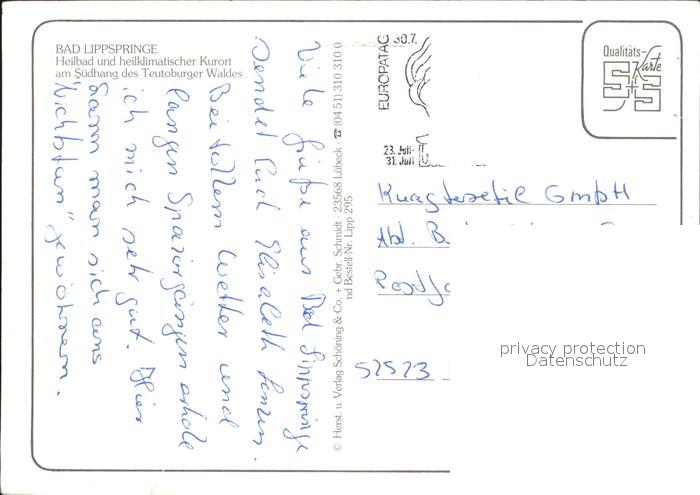 BAD LIPPSPRINGE
Heilbad und heilklimatischer Kurort
am Südhang des Teutoburger Waldes
Viele Grüße aus Bad Lippspringe
sendet Euch Elisabeth
Bei tollem Wetter und
langen Spaziergängen erhole
ich mich sehr gut. Hier
kann man sich ans
"Nichtstun" gewöhnen.
© Herst. u. Verlag Schöning & Co. + Gebr. Schmidt · 23568 Lübeck · ☎ (04 51) 310 310 0
nd Bestell-Nr. Lipp 295
EUROPATAG
30.7.
23. Juli -
31. Juli
Qualitäts-
Karte
S+S
GmbH
Abt. B
Postf
52523
privacy protection
Datenschutz